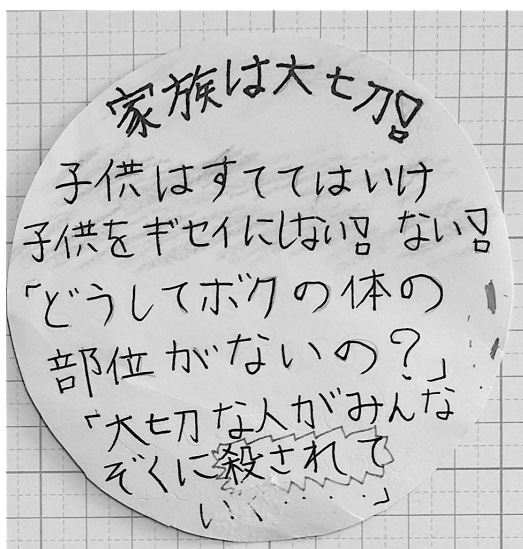 家族は大切!
子供はすててはいけ
子供をギセイにしない! ない!
「どうしてボクの体の
部位がないの?」
「大切な人がみんな
ぞくに殺されて
い・・・・・・」